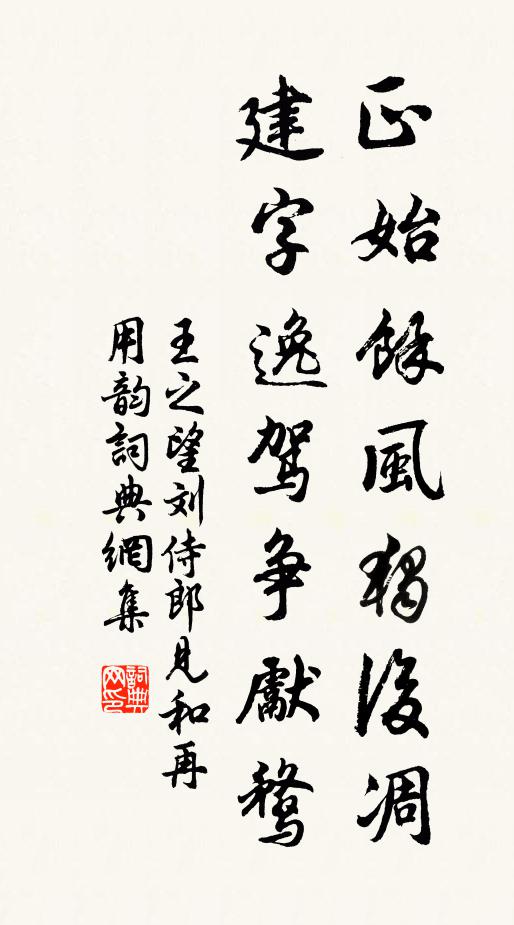 正始餘風獨後凋
建字逸駕争獻騖
王之望刘侍郎見和再
用韵詞典網集
詞典网印